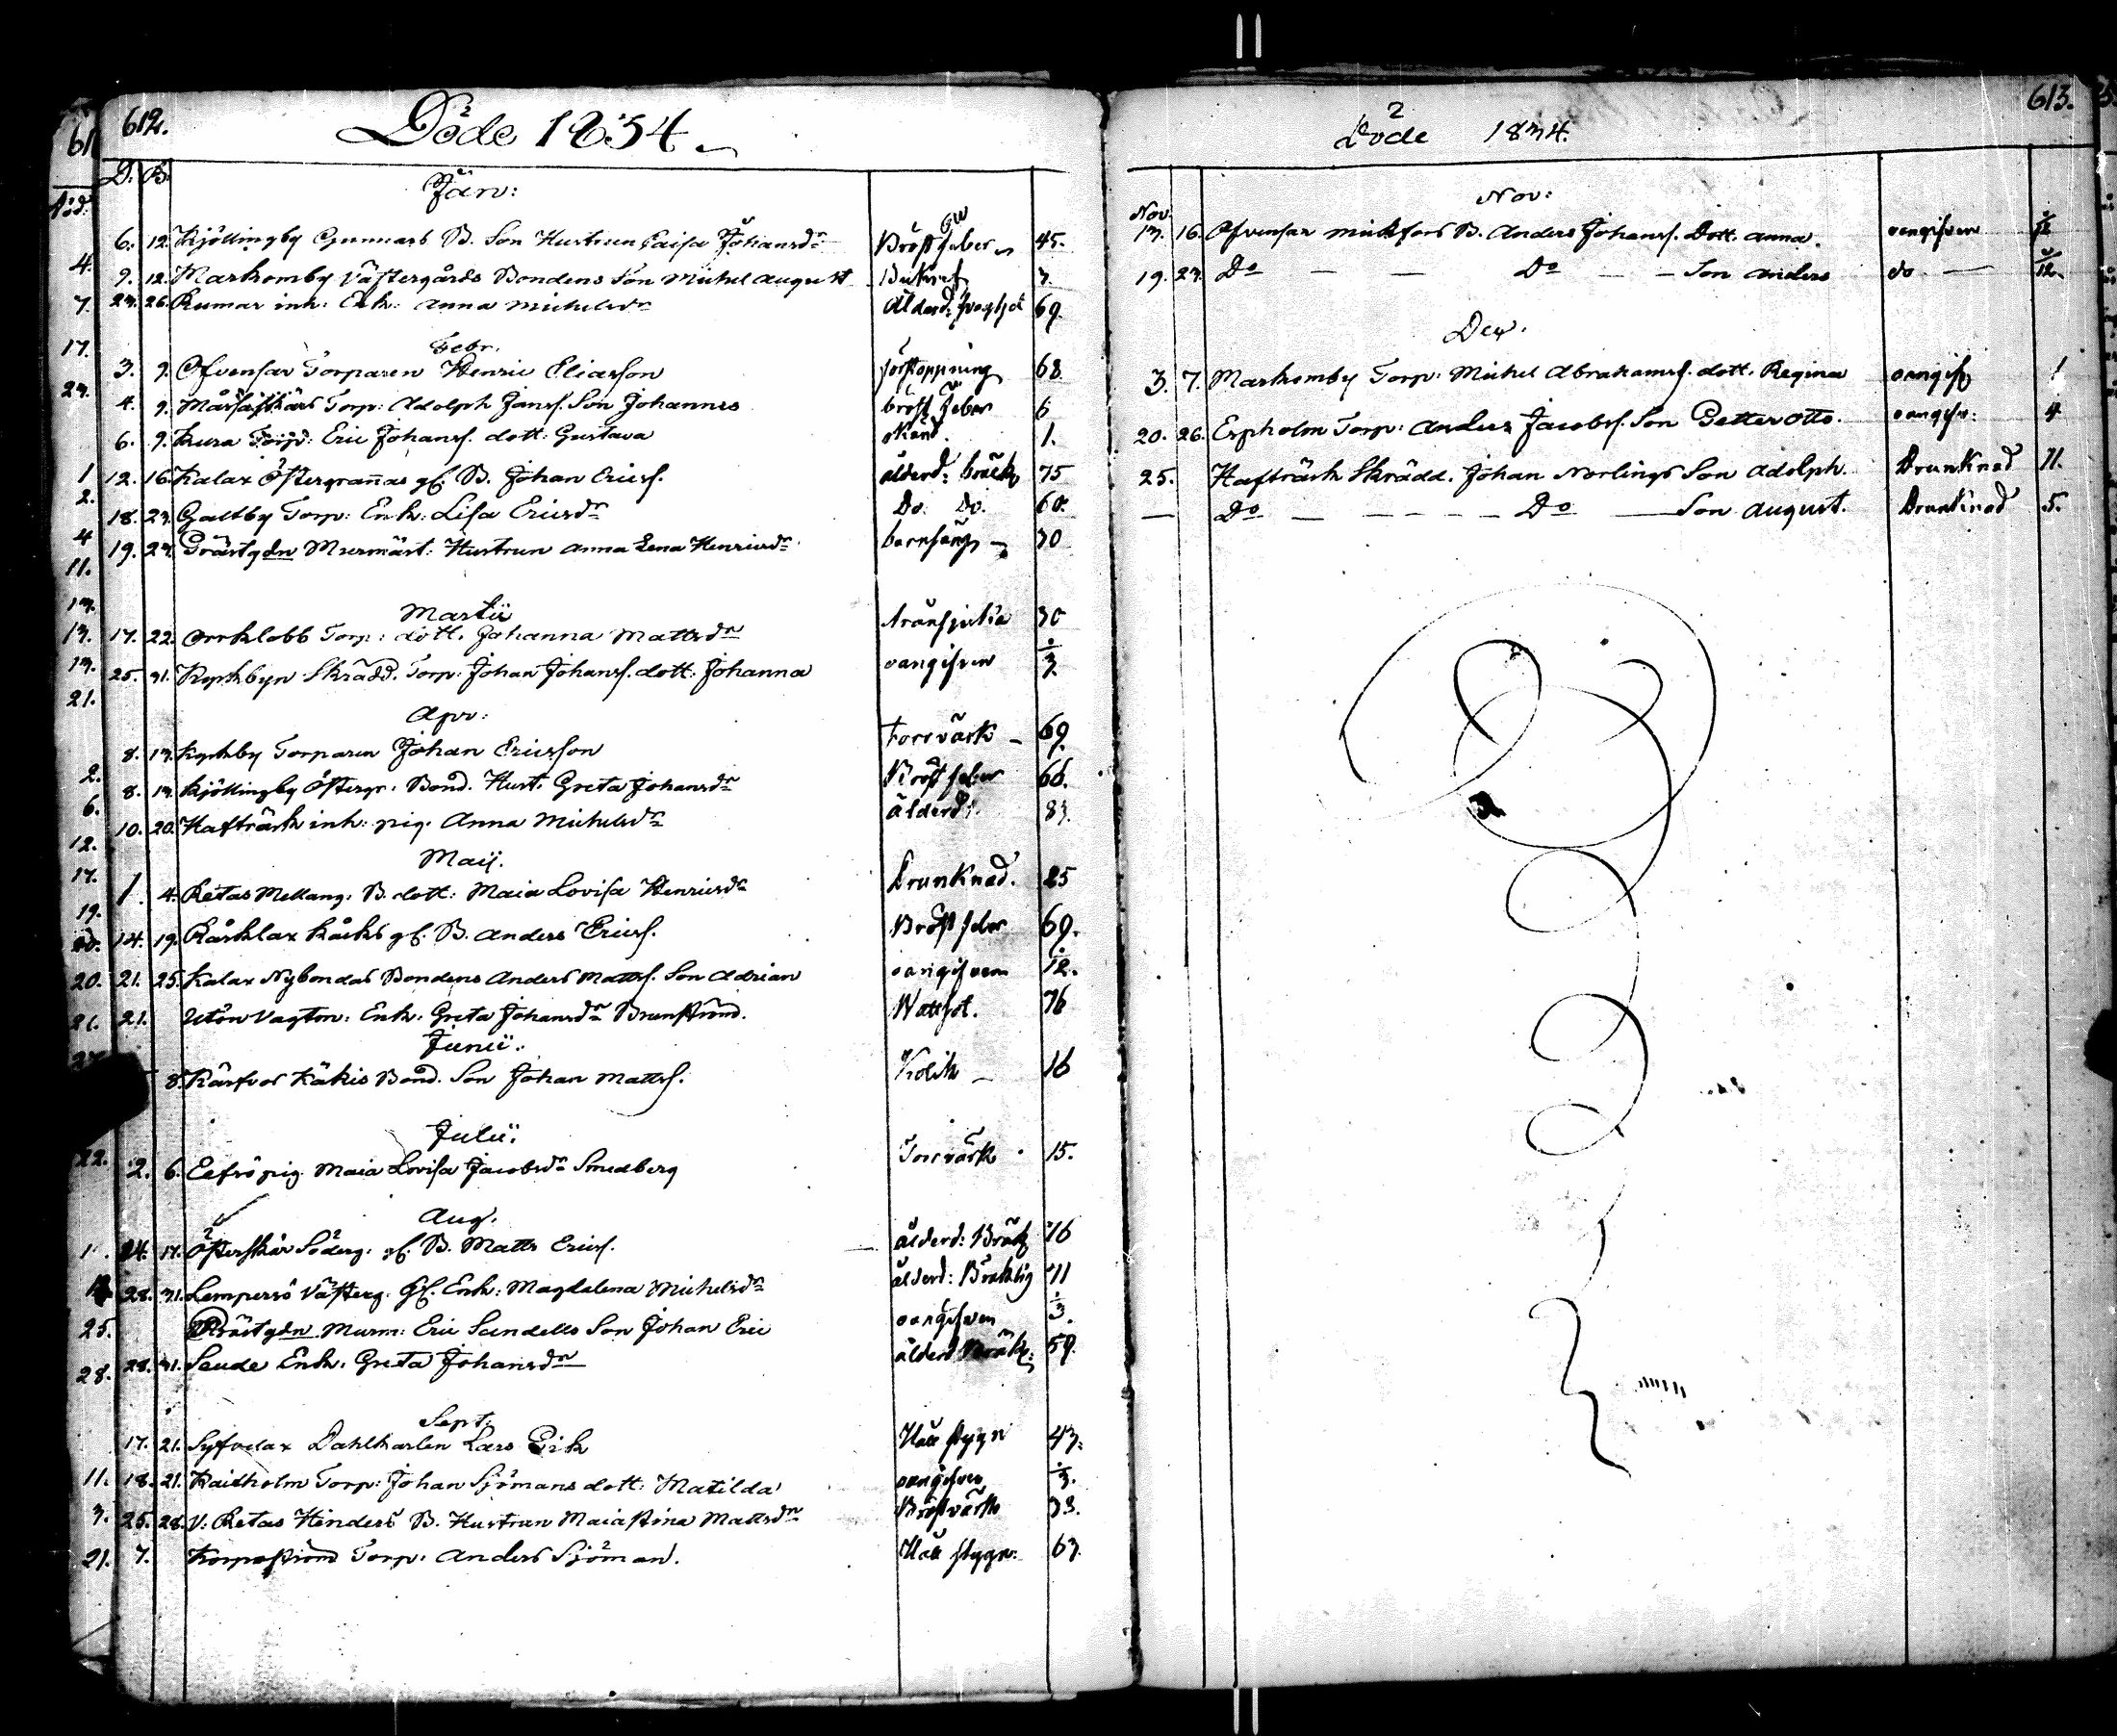 612.
Döde 1834
D. B.
Jan:
6. 12. Kjöllingby Gunnars B. Son Hustrun Caisa Johansdr Bröstfeber 45.
9. 12. Markomby Västergårds Bondens Son Michel August 3.
23. 26. Rumar inh: Enk: Anna Michelsdr Ålderd: 69.
Febr.
3. 9. Ofvensar Torparen Henric Eliasson förstoppning 68
4. 9. Torp: Adolph Janss. Son Johannes bröst feber 6
6. 9. Kura Torp: Eric Johanss. dott: Gustava okänd. 1.
12. 16. Kalax Östergrannas gl. B. Johan Ericss. ålderd: bräckl 75
18. 23. Galtby Torp: Enk: Lisa Ericsdr Do. Do. 60.
19. 23. Prästgdn Murmäst: Hustrun Anna Lena Henricsdr barnsäng 30
Martii
17. 22. Orrklobb Torp: dott. Johanna Mattsdr 30
25. 31. Kyrkbyn Skrädd. Torp: Johan Johanss. dott: Johanna oangifven 3
Apr:
8. 13. Kyrkby Torparen Johan Ericsson Torrvärk 69
8. 13. Kjöllingby Östergr. Bond. Hust. Greta Johansdr Bröst feber 66.
10. 20. Hafträsk inh: pig. Anna Michelsdr ålderd: 83.
Maij.
1. 4. Retas Mellang: B. dott: Maia Lovisa Henricsdr Drunknad. 25
14. 19. Kårklax Kåcks gl. B. Anders Ericss. Bröst feber 69.
21. 25. Kalax Nybondas Bondens Anders Mattss. Son Adrian oangifven 12.
21. Utön Enk: Greta Johansdr Brunström. Wattsot. 76
Junii.
8. Bond. Son Johan Mattss. Kolik 16
Julii.
2. 6. pig. Maia Lovisa Jacobsdr Smedberg Torrvärk 15.
Aug.
24. 17. Österskär Söderg: gl. B. Matts Ericss. ålderd: Bräckl 76
28. 31. Lempersö Västerg. gl. Enk: Magdalena Michelsdr ålderd: Bräcklig 71
Prästgdn Murm: Eric Sandells Son Johan Eric oangifven 3.
28. 31. Saude Enk. Greta Johansdr ålderd Bräckl: 59.
Sept.
17. 21. Dahlkarlen Lars Erik Håll stygn 43.
18. 21. Kaidholm Torp: Johan Sjömans dott: Matilda oangifven 3.
25. 28. V: Retas Hinders B. Hustrun Maiastina Mattsdr Bröstvärk 33.
7. Korpoström Torp: Anders Sjöman. Håll stygn: 63.
613.
Döde 1834.
Nov:
Nov.
13. 16. Ofvensar B. Anders Johanss. Dott. Anna. oangifven
19. 23. Do Do Son Anders do 12.
Dec.
3. 7. Markomby Torp: Michel Abrahamss. dott. Regina oangif 1
20. 26. Espholm Torp: Anders Jacobss. Son Petter Otto. oangifv: 4
25. Hafträsk Skrädd. Johan Norlings Son Adolph. Drunknad 11.
Do Do Son August. Drunknad 5.